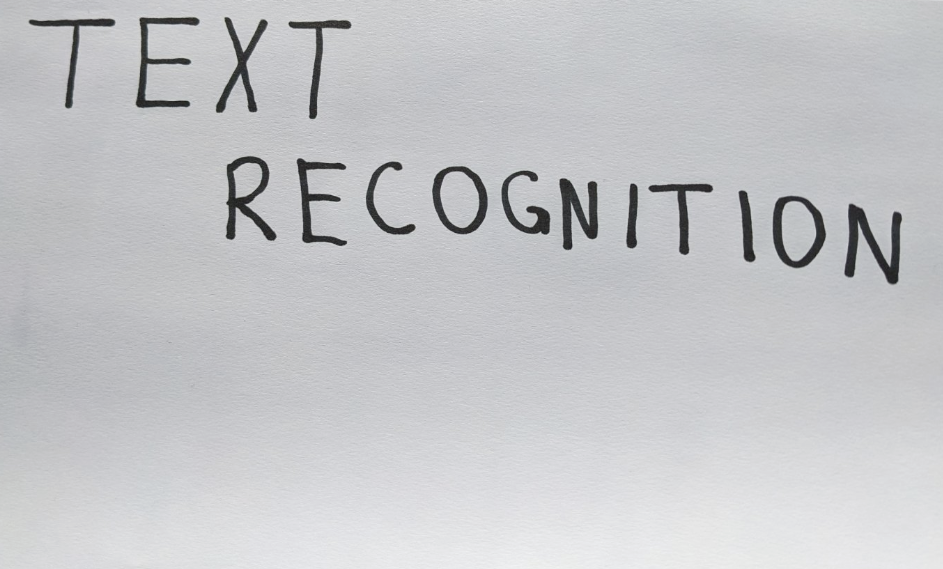 TEXT
RECOGNITION